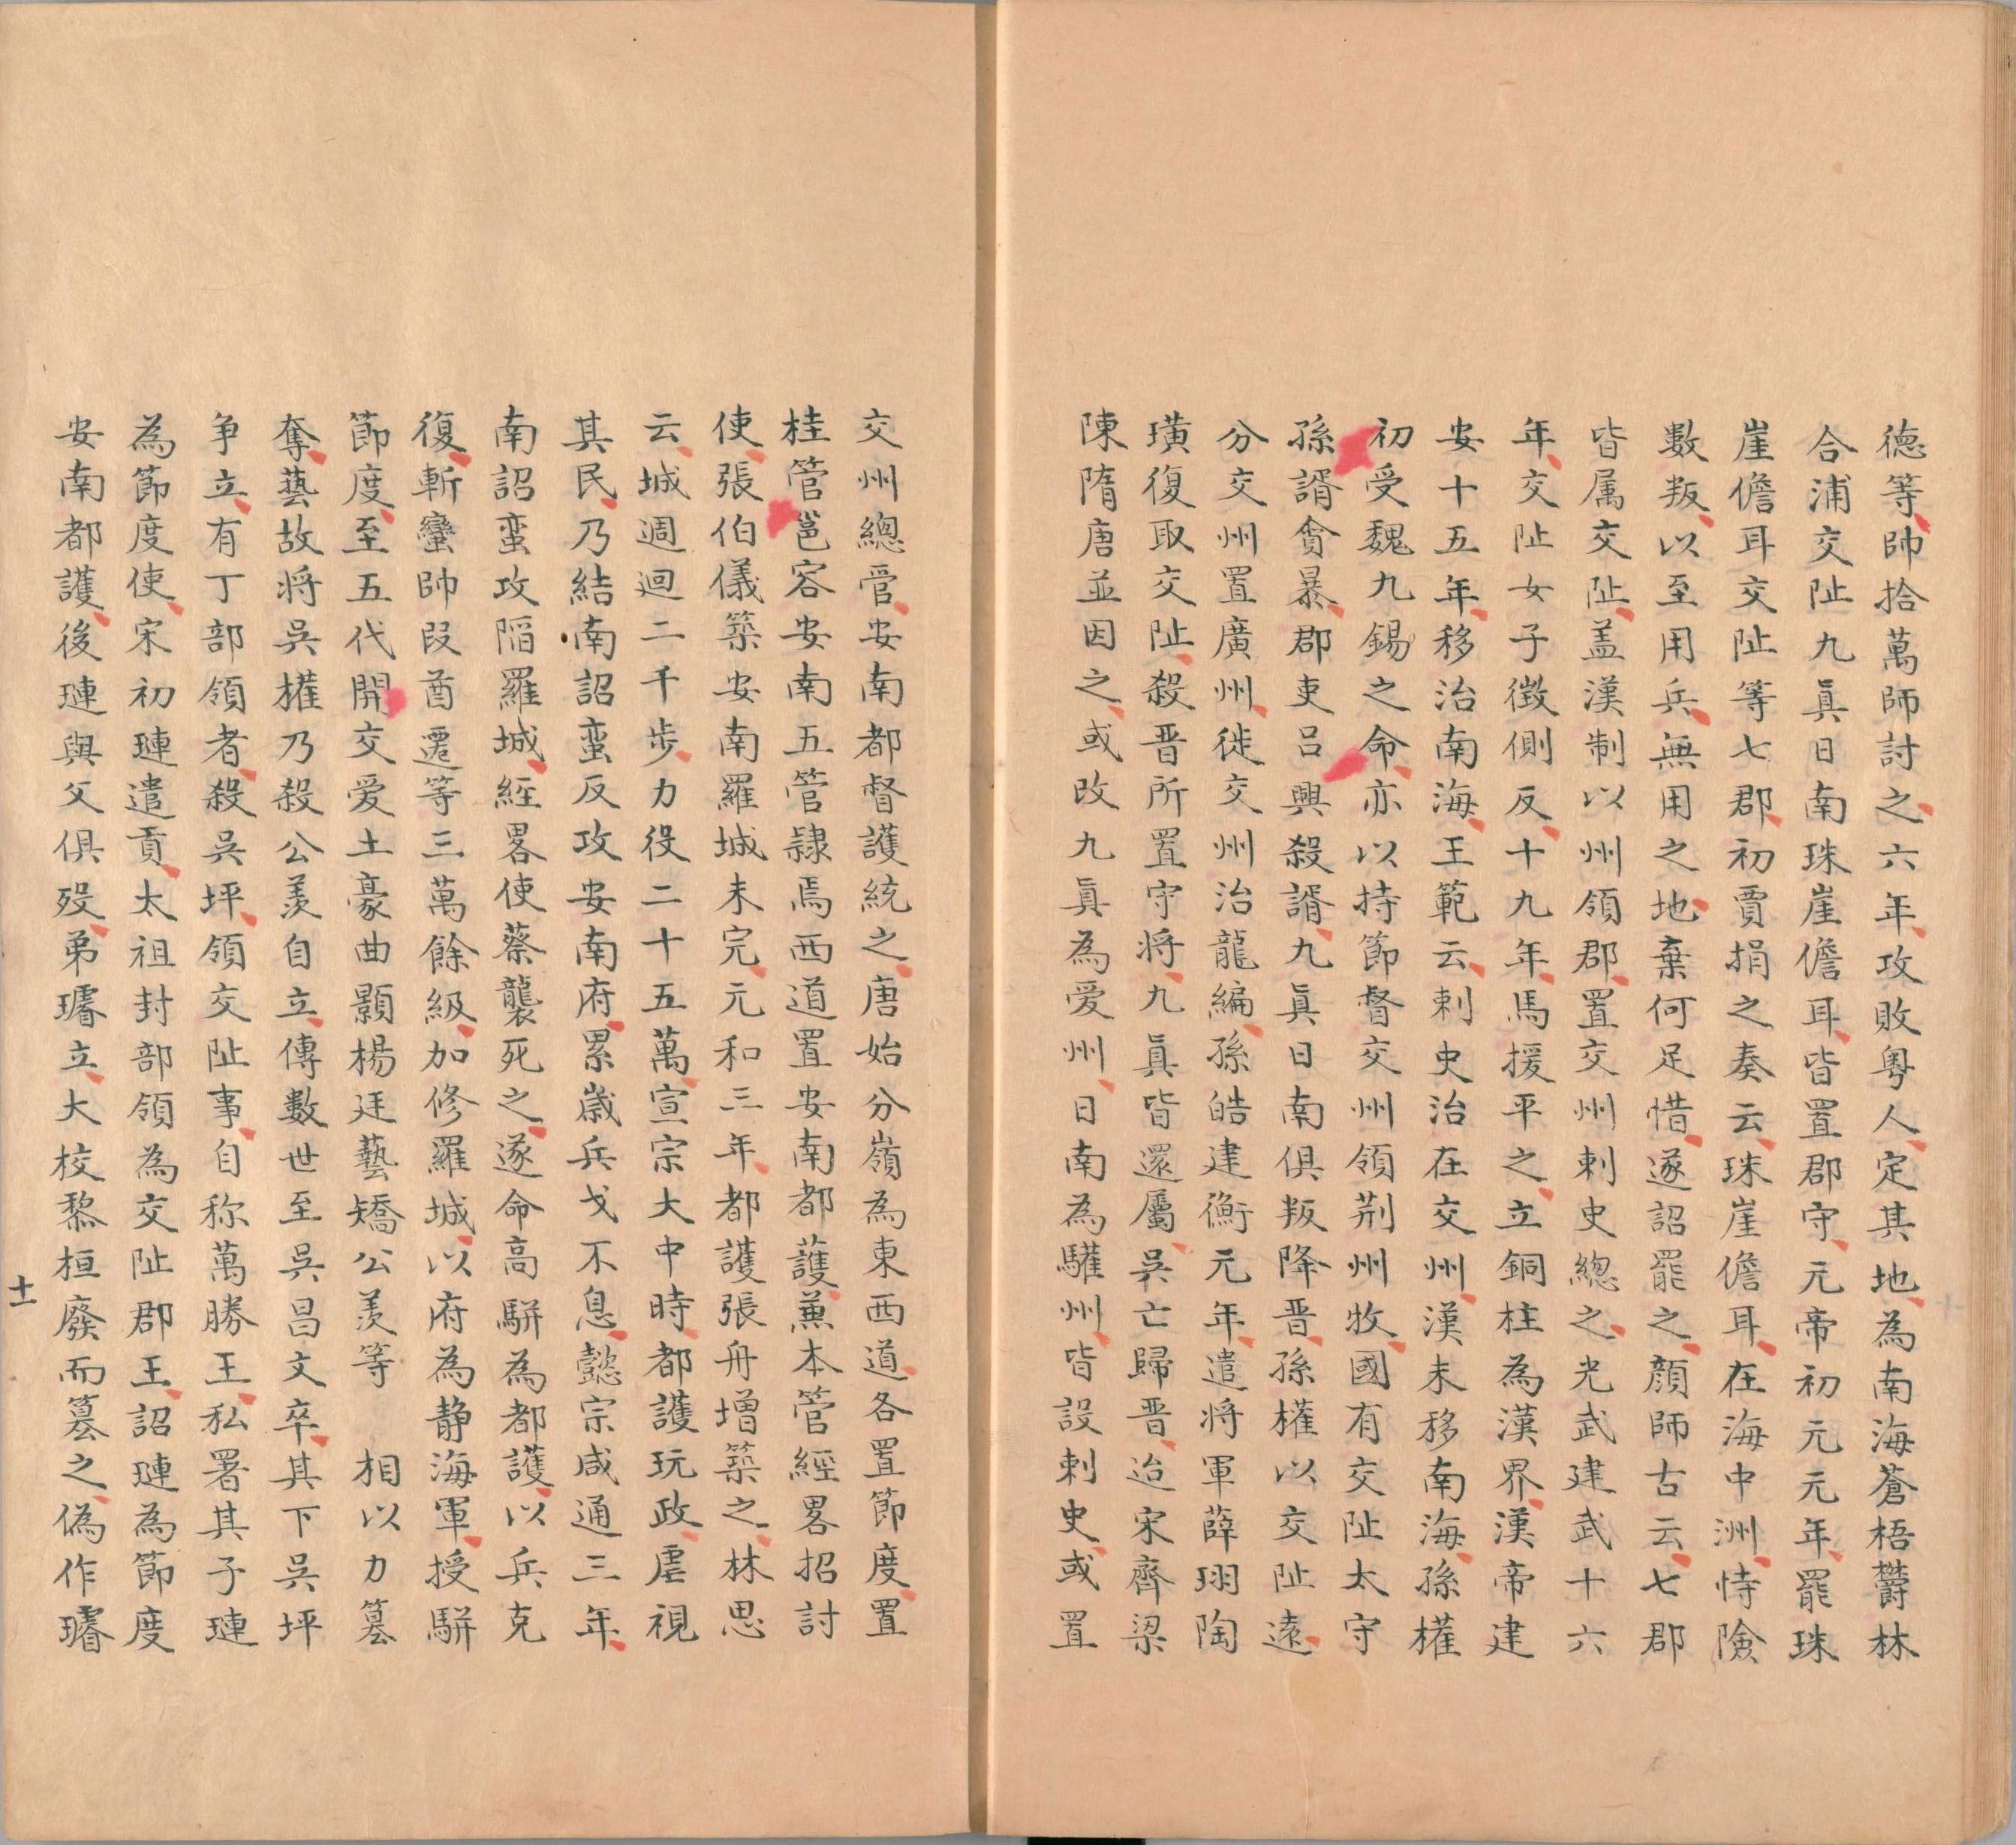 德等帥拾萬師討之六年攻敗粵人定其地為南海蒼梧欝林
合浦交阯九眞日南珠崖儋耳皆置郡守元帝初元元年罷珠
崖儋耳交阯等七郡初賈捐之奏云珠崖儋耳在海中洲恃險
數叛以至用兵無用之地棄何足惜遂詔罷之顔師古云七郡
皆属交阯盖漢制以州領郡置交州刺史總之光武建武十六
年交阯女子徵側反十九年馬援平之立銅柱為漢界漢帝建
安十五年移治南海王範云刺史治在交州漢末移南海孫權
初受魏九錫之命亦以持節督交州領荆州牧國有交阯太守
孫諝貪暴郡吏呂興殺諝九眞日南俱叛降晋孫權以交阯遠
分交州置廣州徙交州治龍編孫皓建衡元年遣將軍薛珝陶
璜復取交阯殺晋所置守將九眞皆還屬吳亡歸晋迨宋齊梁
陳隋唐並因之或改九眞為愛州日南為驩州皆設刺史或置
交州總管安南都督護統之唐始分嶺為東西道各置節度置
桂管邕容安南五管隷焉西道置安南都護蒹本管經畧招討
使張伯儀築安南羅城未完元和三年都護張舟增築之林思
云城週迴二千步力役二十五萬宣宗大中時都護玩政虐視
其民乃結南詔蛮反攻安南府累歲兵戈不息懿宗咸通三年
南詔蛮攻陷羅城經畧使蔡襲死之遂命高駢為都護以兵克
復斬蠻帥段酋遷等三萬餘級加修羅城以府為静海軍授駢
節度至五代開交爱土豪曲顥楊廷藝矯公羡等 相以力篡
奪藝故将吳權乃殺公羡自立傳數世至吳昌文卒其下吳坪
争立有丁部領者殺吳坪領交阯事自称萬勝王私署其子璉
為節度使宋初璉遣貢太祖封部領為交阯郡王詔璉為節度
安南都護後璉與父俱殁弟璿立大校黎桓廢而篡之偽作璿
十一